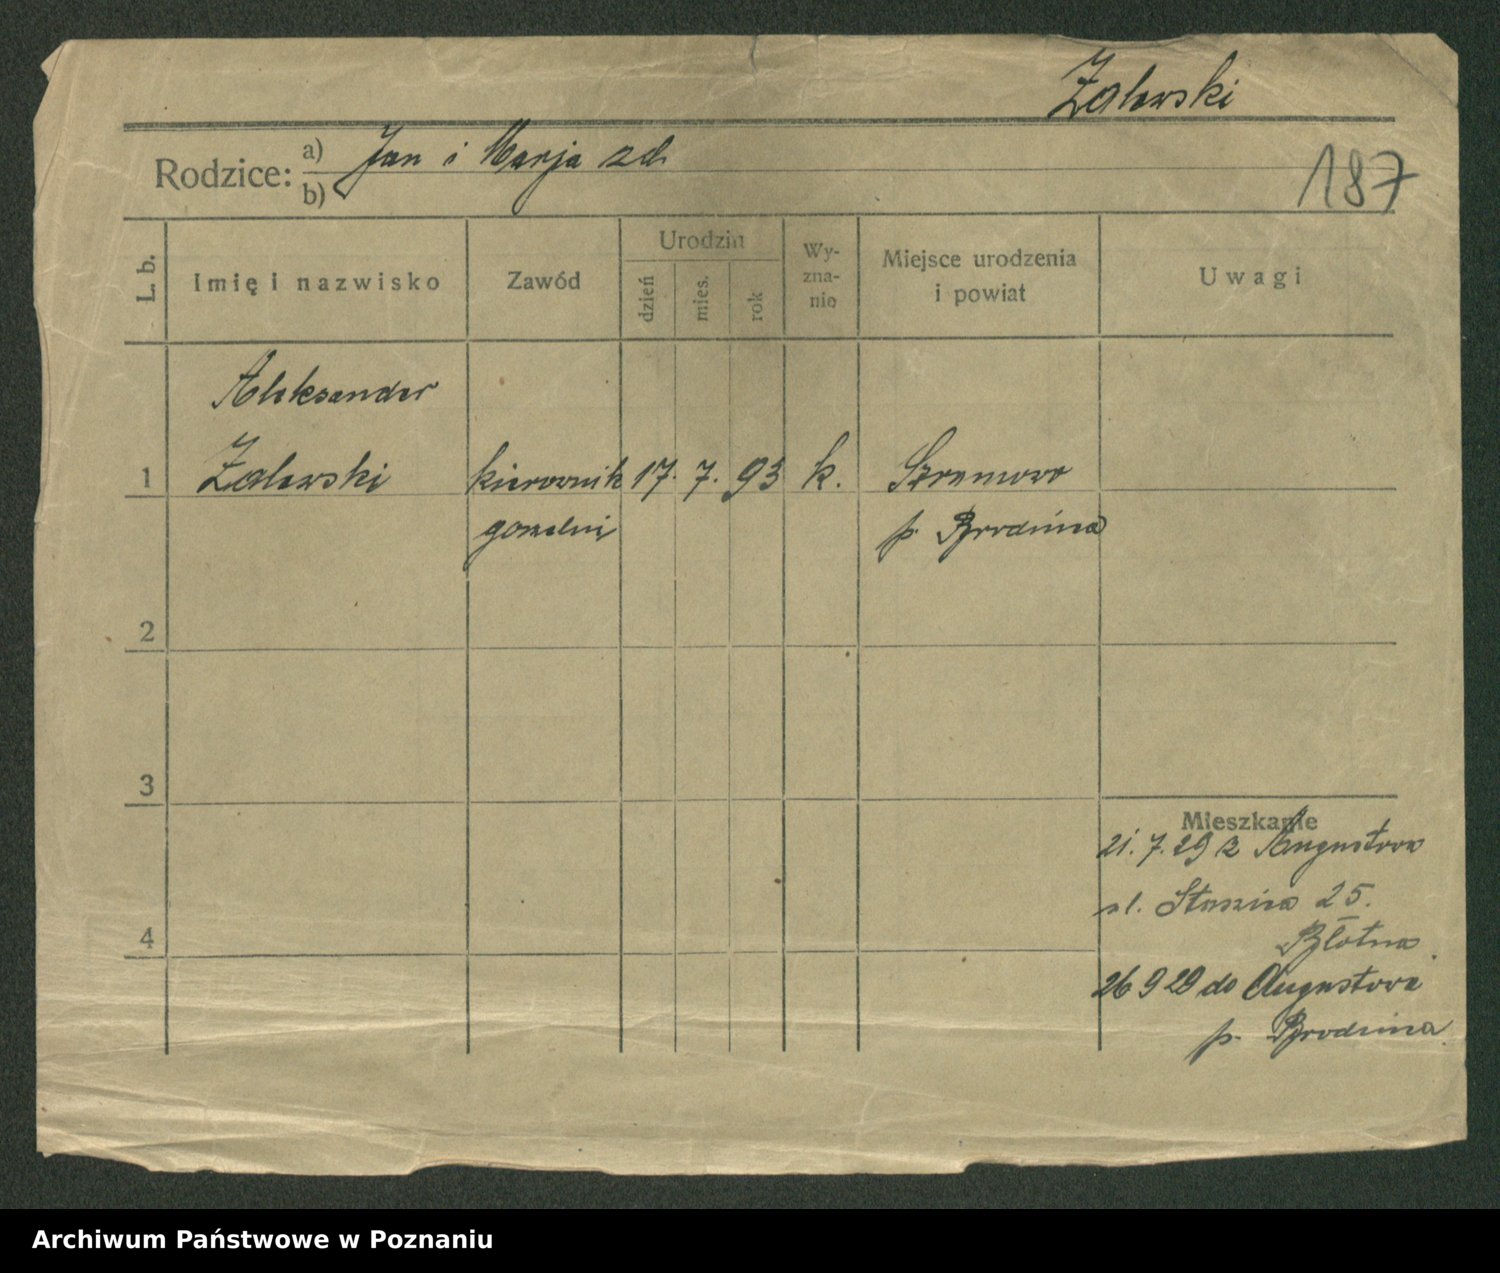 Zalewski
Rodzice: a) Jan i Marja zd.
b)
187
L. b.
Imię i nazwisko
Zawód
Urodzin
dzień
mies.
rok
Wy-
zna-
nie
Miejsce urodzenia
i powiat
Uwagi
Aleksander
1 Zalewski kierownik 17. 7. 93 k.
gorzelni
p. Brodnica
2
3
4
Mieszkanie
21. 7. 29 z Augustowa
ul. Staszica 25.
Błotna
26 9 29 do Augustowa
p. Brodnica
Archiwum Państwowe w Poznaniu